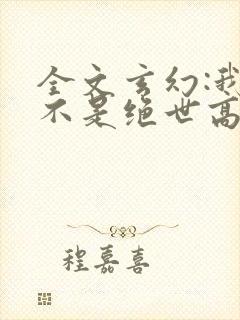 全文玄幻:我
不是绝世高
程嘉喜